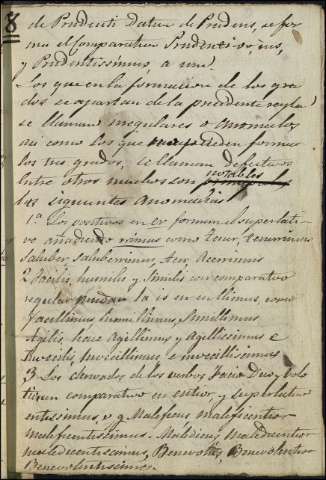 8
de Prudenti Dativo de Prudens, se for
ma el Comparativo Prudentior, ius,
y Prudentissimus, a um.
Los que en la formacion de los gra
dos se apartan de la precedente regla
se llaman irregulares o anomalos
asi como los que no pueden formar
los tres grados, se llaman defectivos
Entre otros muchos son notables
las siguientes anomalias
1.ª Los positivos en er forman el superlati-
vo añadiendo rimus como Tener, tenerrimus
Saluber, Saluberrimus, Acer, Acerrimus
2 Facilis, humilis y Similis con comparativo
regular mudan la is en illimus, como
Facillimus, humillimus, Simillimus
Agilis, hace Agillimus y Agilissimus e
Imbecilis, Imbecillimus, e imbecillissimus
3. Los derivados de los verbos Facio Dico, y Volo
tienen comparativo en entior, y superlativo
entissimus, v. g. Maleficus maleficentior
maleficentissimus. Maledicus, maledicentior
maledicentissimus, Benevolus, Benevolentior
Benevolentissimus.